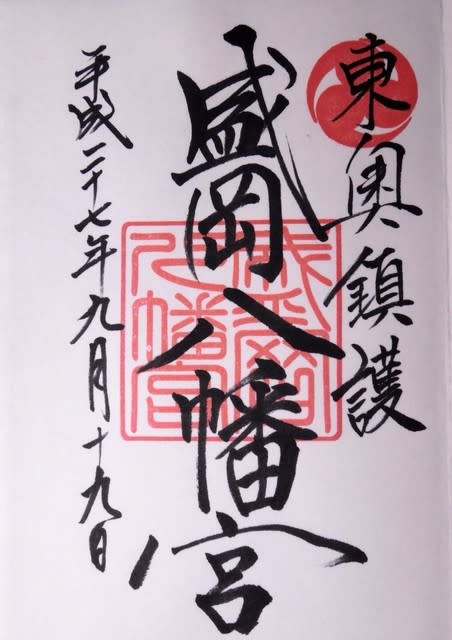 東奥鎮護
盛岡八幡宮
平成二十七年九月十九日
盛岡
八幡宮